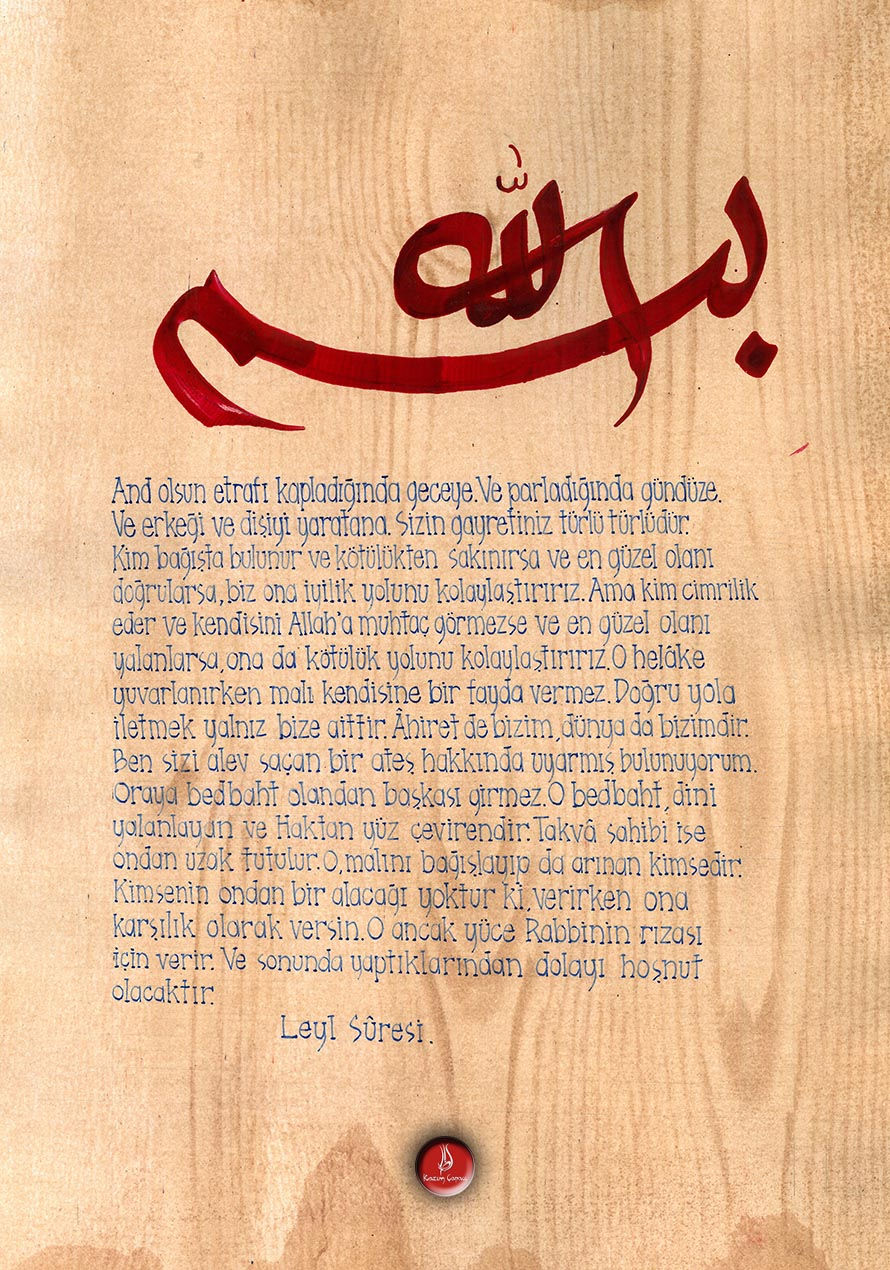 بسم الله
And olsun etrafı kapladığında geceye. Ve parladığında gündüze.
Ve erkeği ve dişiyi yaratana. Sizin gayretiniz türlü türlüdür.
Kim bağışta bulunur ve kötülükten sakınırsa ve en güzel olanı
doğrularsa, biz ona iyilik yolunu kolaylaştırırız. Ama kim cimrilik
eder ve kendisini Allah'a muhtaç görmezse ve en güzel olanı
yalanlarsa, ona da kötülük yolunu kolaylaştırırız. O helâke
yuvarlanırken malı kendisine bir fayda vermez. Doğru yola
iletmek yalnız bize aittir. Âhiret de bizim, dünya da bizimdir.
Ben sizi alev saçan bir ateş hakkında uyarmış bulunuyorum.
Oraya bedbaht olandan başkası girmez. O bedbaht, dini
yalanlayan ve Haktan yüz çevirendir. Takvâ sahibi ise
ondan uzak tutulur. O, malını bağışlayıp da arınan kimsedir.
Kimsenin ondan bir alacağı yoktur ki, verirken ona
karşılık olarak versin. O ancak yüce Rabbinin rızası
için verir. Ve sonunda yaptıklarından dolayı hoşnut
olacaktır.
Leyl Sûresi.